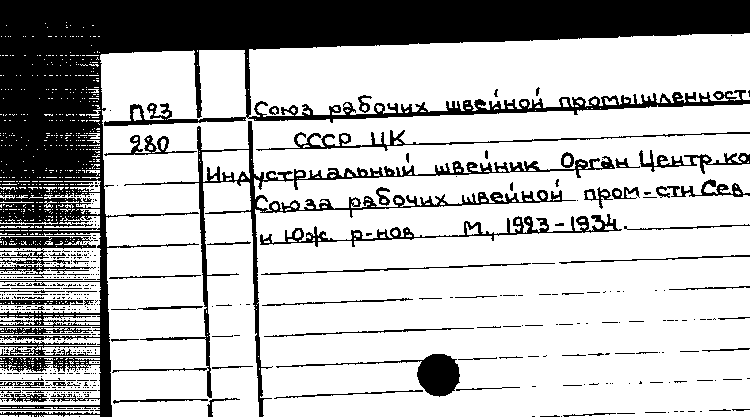 П23 Союз рабочих швейной промышленност
280 СССР ЦК.
Индустриальный швейник Орган Центр.ко
Союза рабочих швейной пром-сти Сев.
и Юж. р-нов. М., 1923-1934.